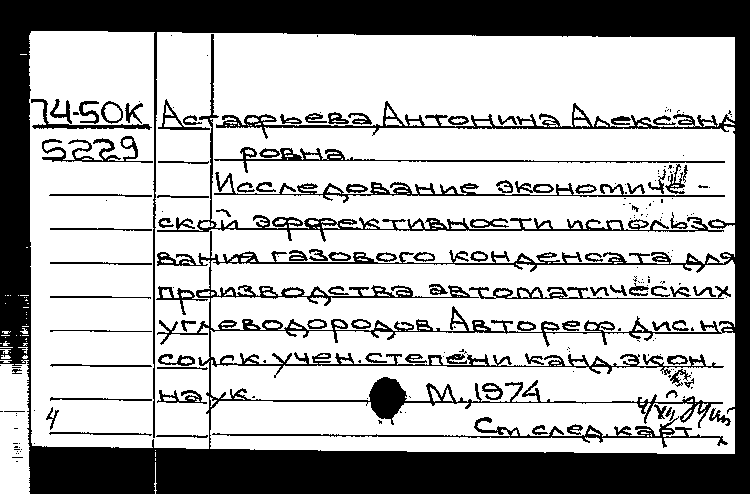 74-50К Астафьева, Антонина Александ
5229 ровна.
Исследование экономиче-
ской эффективности использо-
вания газового конденсата для
производства автоматических
углеводородов. Автореф. дис. на
соиск. учен. степени канд. экон.
наук. М., 1974.
4 См. след. карт.